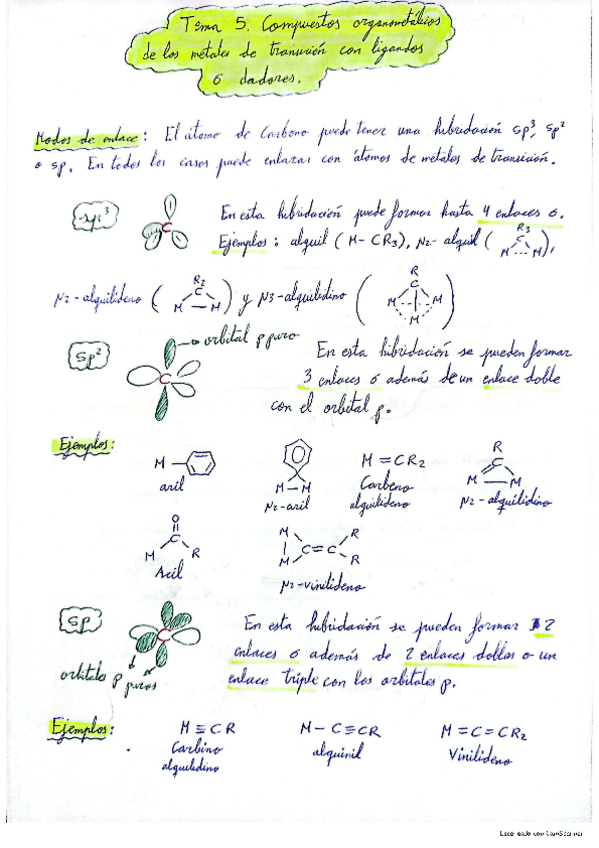 Tema 5. Compuestos organometálicos
de los metales de transición con ligandos
σ dadores.
Modos de enlace: El átomo de Carbono puede tener una hibridación sp³, sp²
o sp. En todos los casos puede enlazar con átomos de metales de transición.
sp³
C
En esta hibridación puede formar hasta 4 enlaces σ.
Ejemplos: alquil (M-CR₃), μ₂-alquil (R₃ C M M),
μ₂-alquilideno (R₂ C M M) y μ₃-alquilidino (R C M M M)
sp²
C
orbital p puro
En esta hibridación se pueden formar
3 enlaces σ además de un enlace doble
con el orbital p.
Ejemplos:
M
aril
M-M
μ₂-aril
M=CR₂
Carbeno
alquilideno
R
C
M M
μ₂-alquilidino
O
C
M R
Acil
M R
C=C
M R
μ₂-vinilideno
sp
C
orbitales p puros
En esta hibridación se pueden formar 2
enlaces σ además de 2 enlaces dobles o un
enlace triple con los orbitales p.
Ejemplos:
M≡CR
Carbino
alquilidino
M-C≡CR
alquinil
M=C=CR₂
Vinilideno
Escaneado con CamScanner